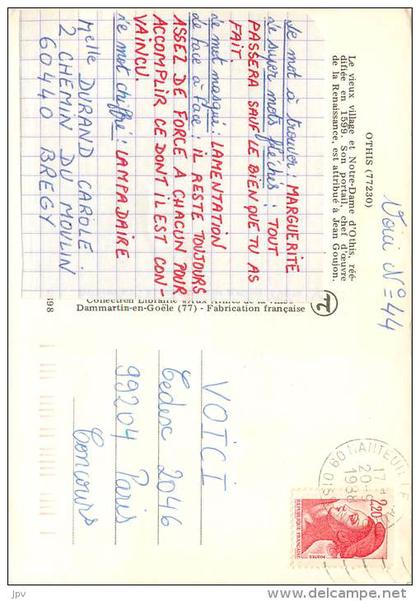 OTHIS (77230)
Le vieux village et Notre-Dame d'Othis, réé-
difiée en 1599. Son portail, chef d'œuvre
de la Renaissance, est attribué à Jean Goujon.
Voici N° 44
Le mot à trouver: MARGUERITE
Le super mots fléchés: TOUT
PASSERA SAUF LE BIEN QUE TU AS
FAIT.
Le mot masqué: LAMENTATION
de face à face IL RESTE TOUJOURS
ASSEZ DE FORCE A CHACUN POUR
ACCOMPLIR CE DONT IL EST CON-
VAINCU.
Le mot chiffré: LAMPADAIRE
Melle DURAND CAROLE
2 CHEMIN DU MOULIN
60440 BREGY
Collection Librairie
Dammartin-en-Goële (77) - Fabrication française
VOICI
Cedex 2046
99204 Paris
Concours
60 NANTEUIL
17 H
20-9
1988
OISE
2,20
REPUBLIQUE FRANÇAISE
POSTES
JPV